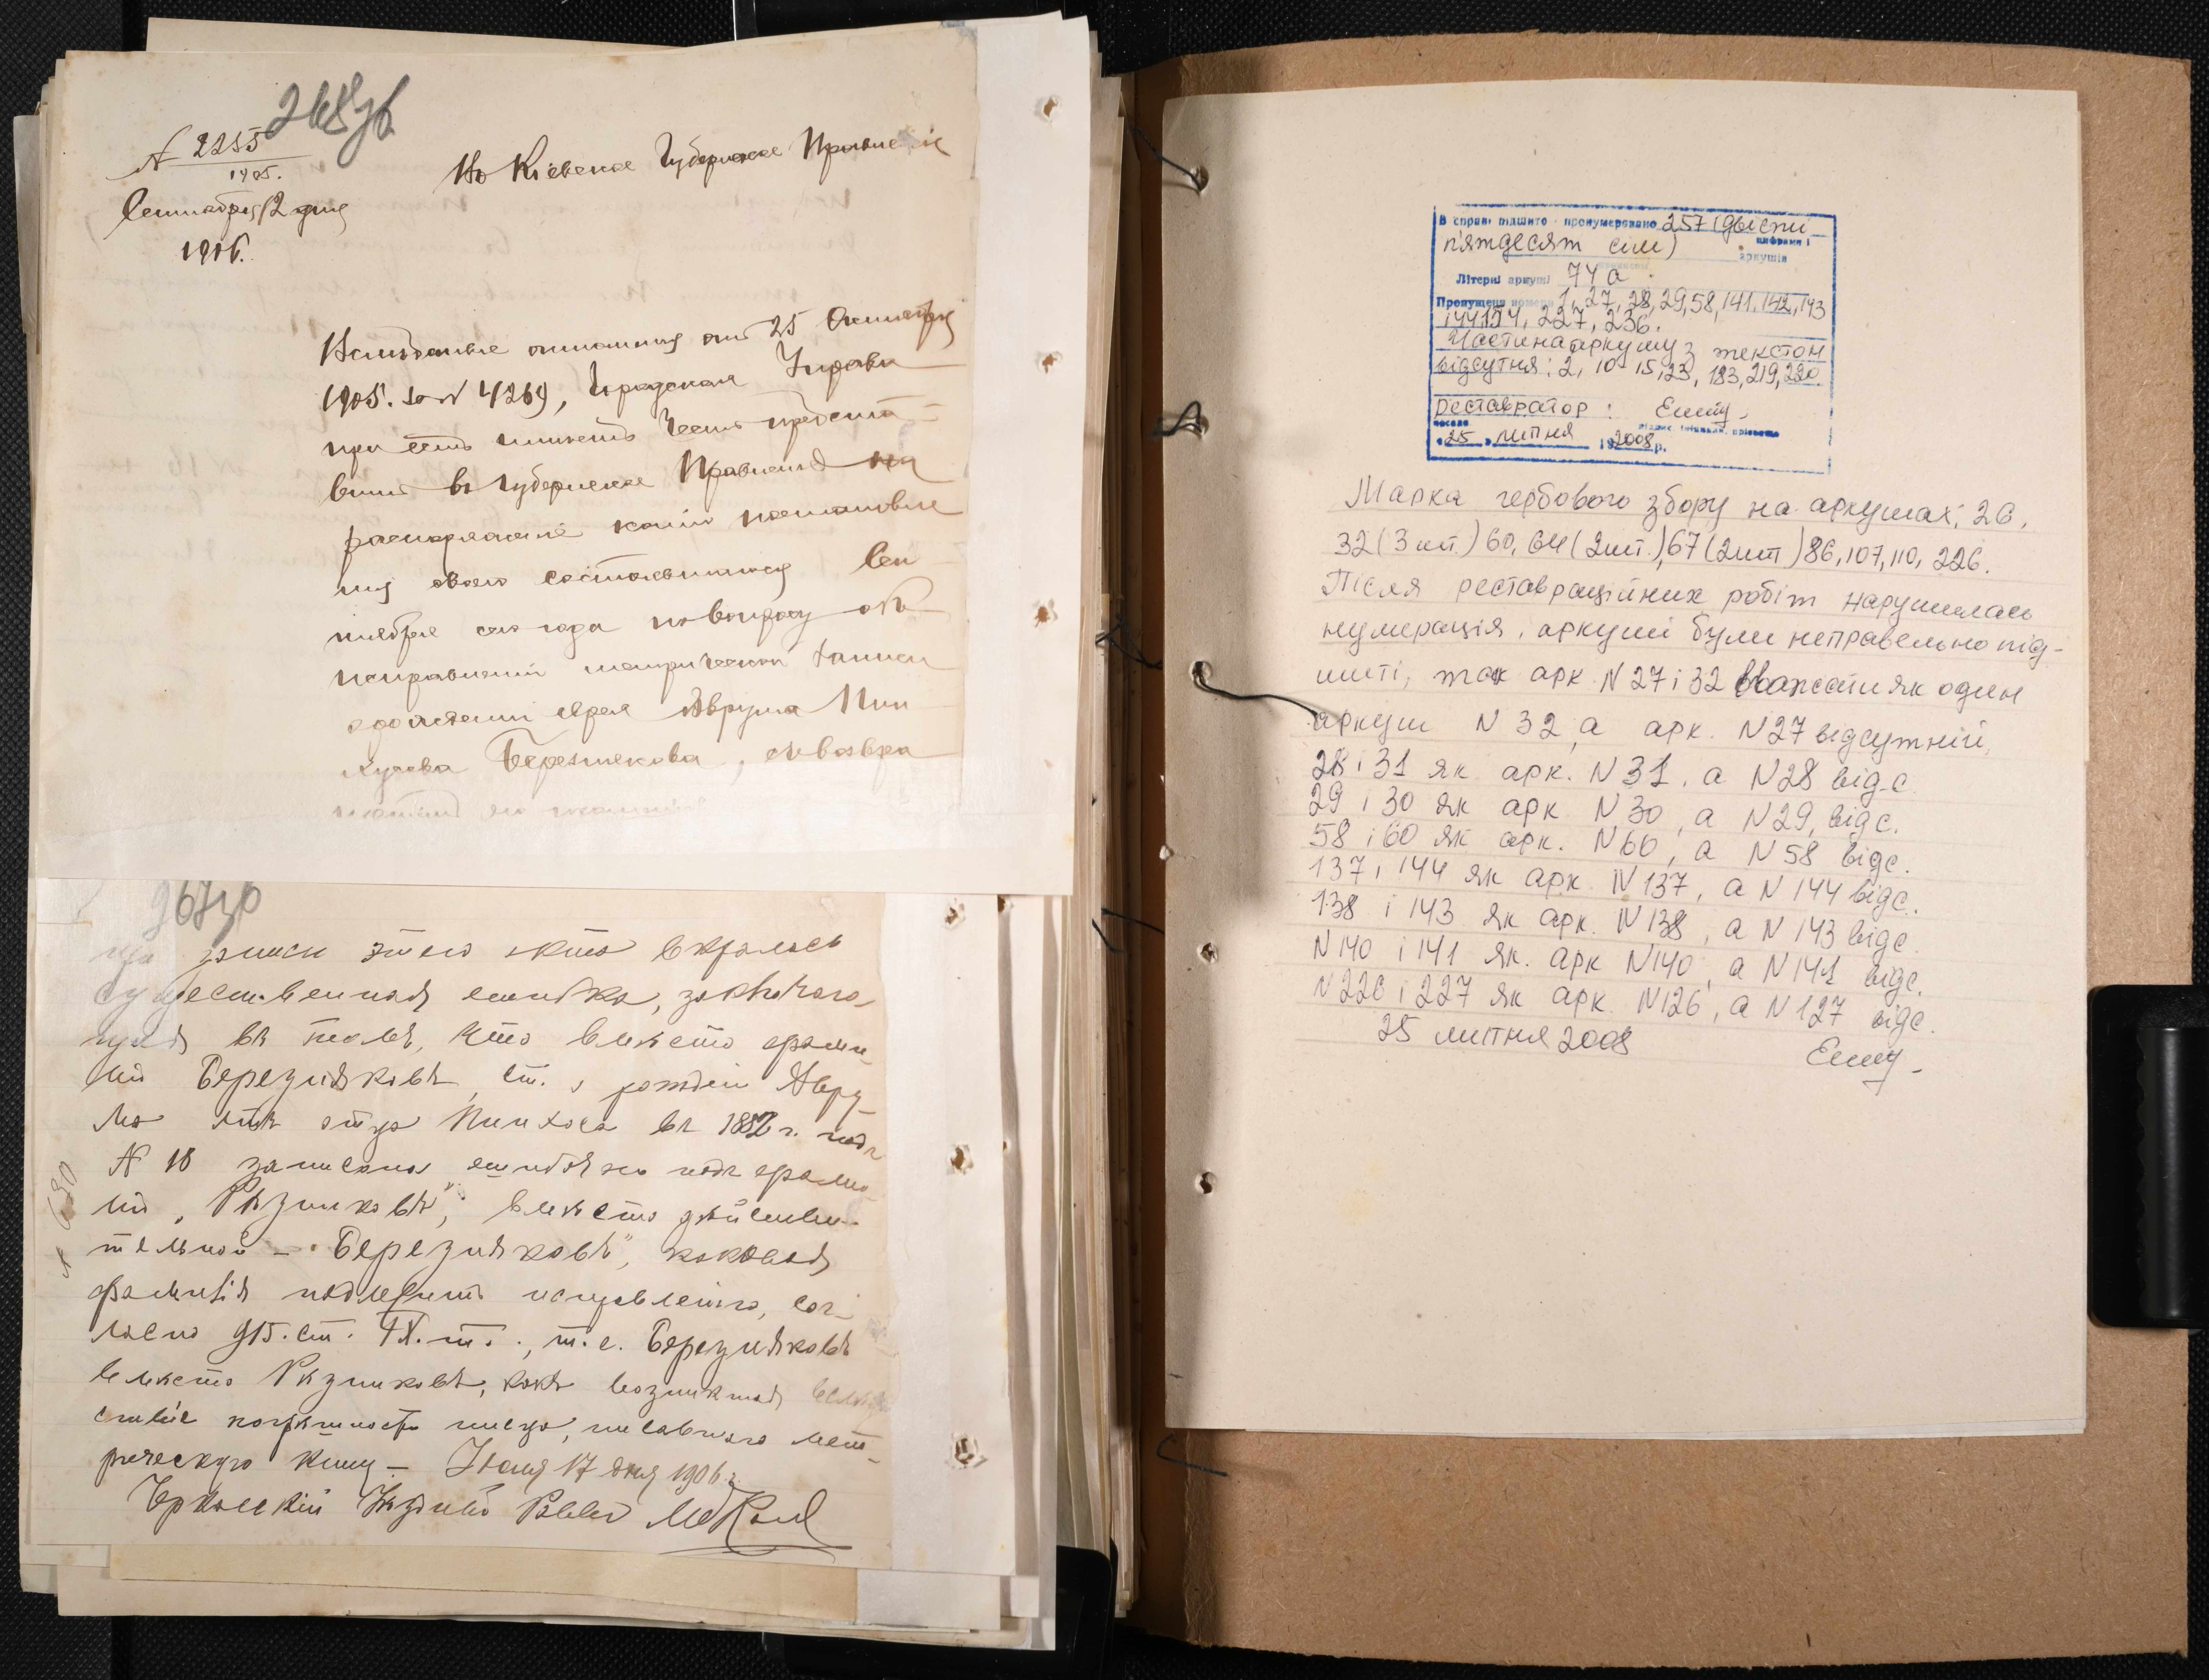 268зв
№ 2255
1905.
Сентября 12 дня
1906.
Въ Кіевское Губернское Правленіе
Вслѣдствіе отношенія отъ 25 Октября
1905. за № 4269, Городская Управа
при семъ имѣетъ честь предста-
вить въ Губернское Правленіе на
распоряженіе копію постановле
нія своего состоявшагося Сен
тября сего года по вопросу объ
исправленіи метрической записи
о рожденіи еврея Аврума Пин
хусова Березнякова, съ возвра
267зв
при записи этого акта вкралась
существенная ошибка, заключаю-
щаяся въ томъ, что вмѣсто фами-
ліи Березняковъ, ст. о рожденіи Авру-
ма отъ отца Пинхоса въ 1882 г. подъ
№ 18 записана ошибочно подъ фами-
ліи „Рѣзниковъ", вмѣсто дѣйстви-
тельной – „Березняковъ", каковая
фамилія подлежитъ исправленію, сог-
ласно 915. ст. IX. т., т.е. Березняковъ
вмѣсто Рѣзниковъ, какъ возникшая вслѣд
ствіе погрѣшности писца, писавшаго мет-
рическую книгу – Іюня 17 дня 1906 г.
Черкасскій Казенный Раввинъ
№ 630
В справі підшито і пронумеровано 257 (двісти
п'ятдесят сім) цифрами і
аркушів
Літерні аркуші 74 а
Пропущені номери 1, 27, 28, 29, 58, 141, 142, 143
144, 154, 227, 236.
Частина аркушу з текстом
відсутня: 2, 10-15, 23, 183, 219, 220.
Реставратор :
посада
підпис ініціали, прізвище
"25" липня 2008 р.
Марка гербового збору на аркушах: 26,
32 (3 шт.) 60, 64 (2шт.), 67 (2шт) 86, 107, 110, 226.
Після реставраційних робіт нарушилась
нумерація, аркуші були неправельно під-
шиті, так арк N 27 і 32 вважати як один
аркуш N 32, а арк. N 27 відсутній,
28 і 31 як арк. N 31, а N 28 відс
29 і 30 як арк N 30, а N 29, відс.
58 і 60 як арк. N 60, а N 58 відс.
137 і 144 як арк N 137, а N 144 відс.
138 і 143 як арк. N 138, а N 143 відс.
N 140 і 141 як. арк N 140, а N 141 відс.
N 226 і 227 як арк. N 126, а N 127 відс.
25 липня 2008